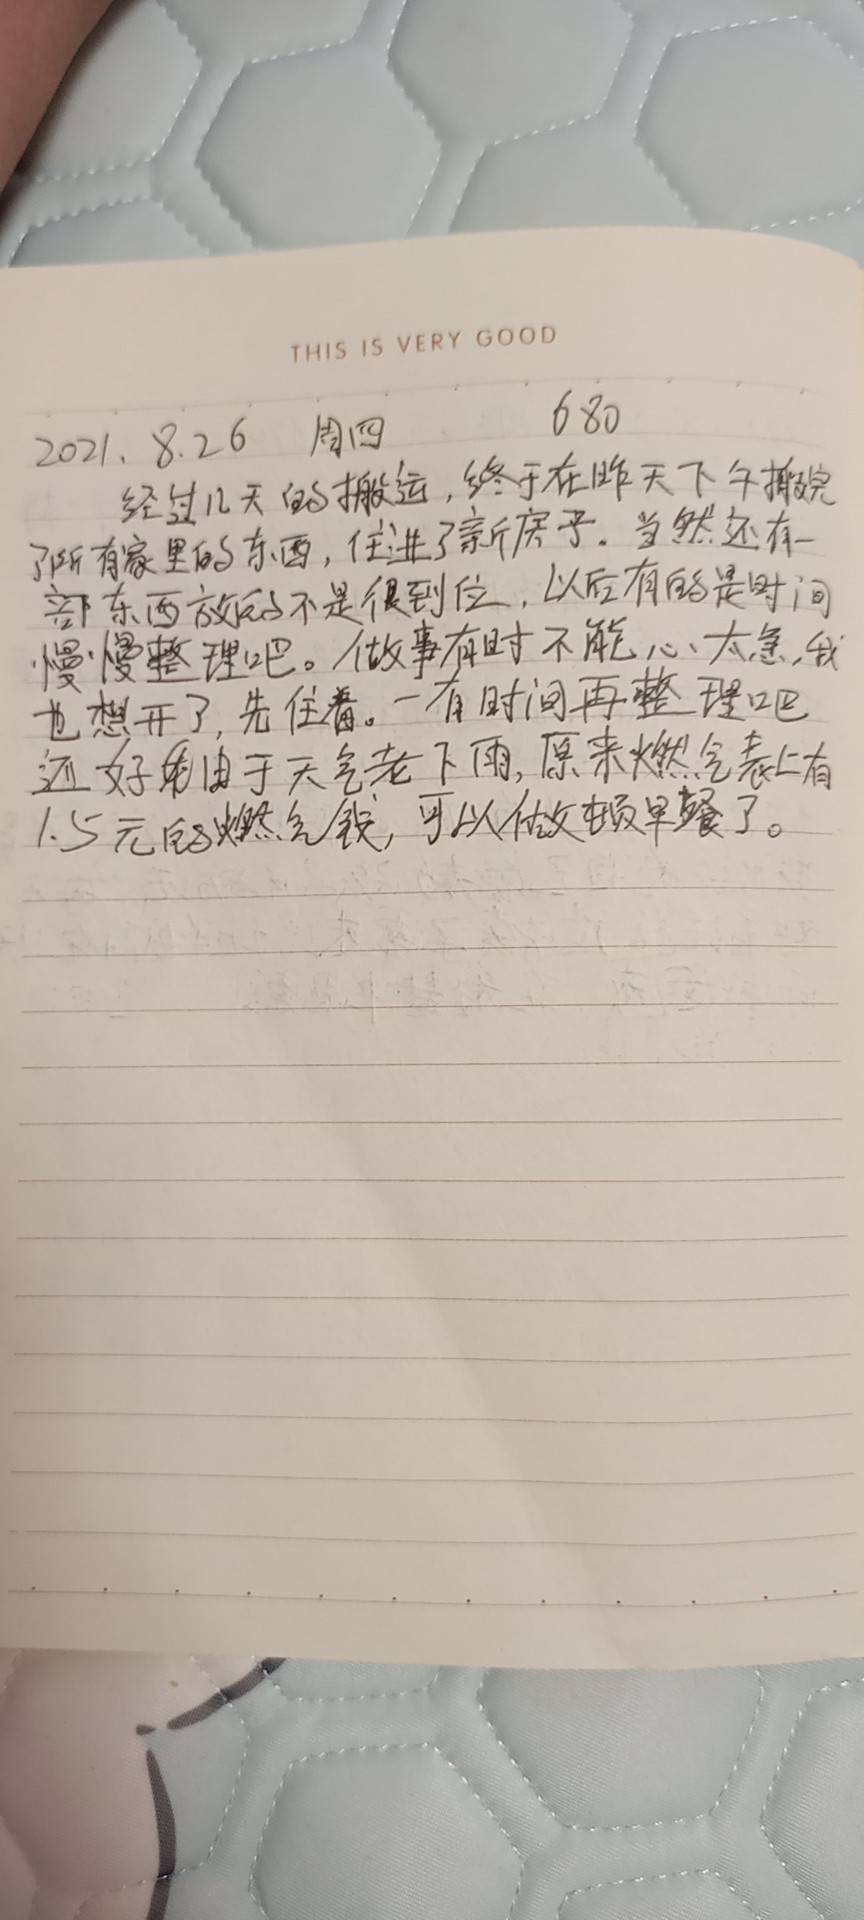 THIS IS VERY GOOD
2021.8.26 周四 680
经过几天的搬运,终于在昨天下午搬完
了所有家里的东西,住进了新房子。当然还有一
部东西放的不是很到位,以后有的是时间
慢慢整理吧。做事有时不能心太急,我
也想开了,先住着。一有时间再整理吧
还好 由于天气老下雨,原来燃气表上有
1.5元的燃气钱,可以做顿早餐了。